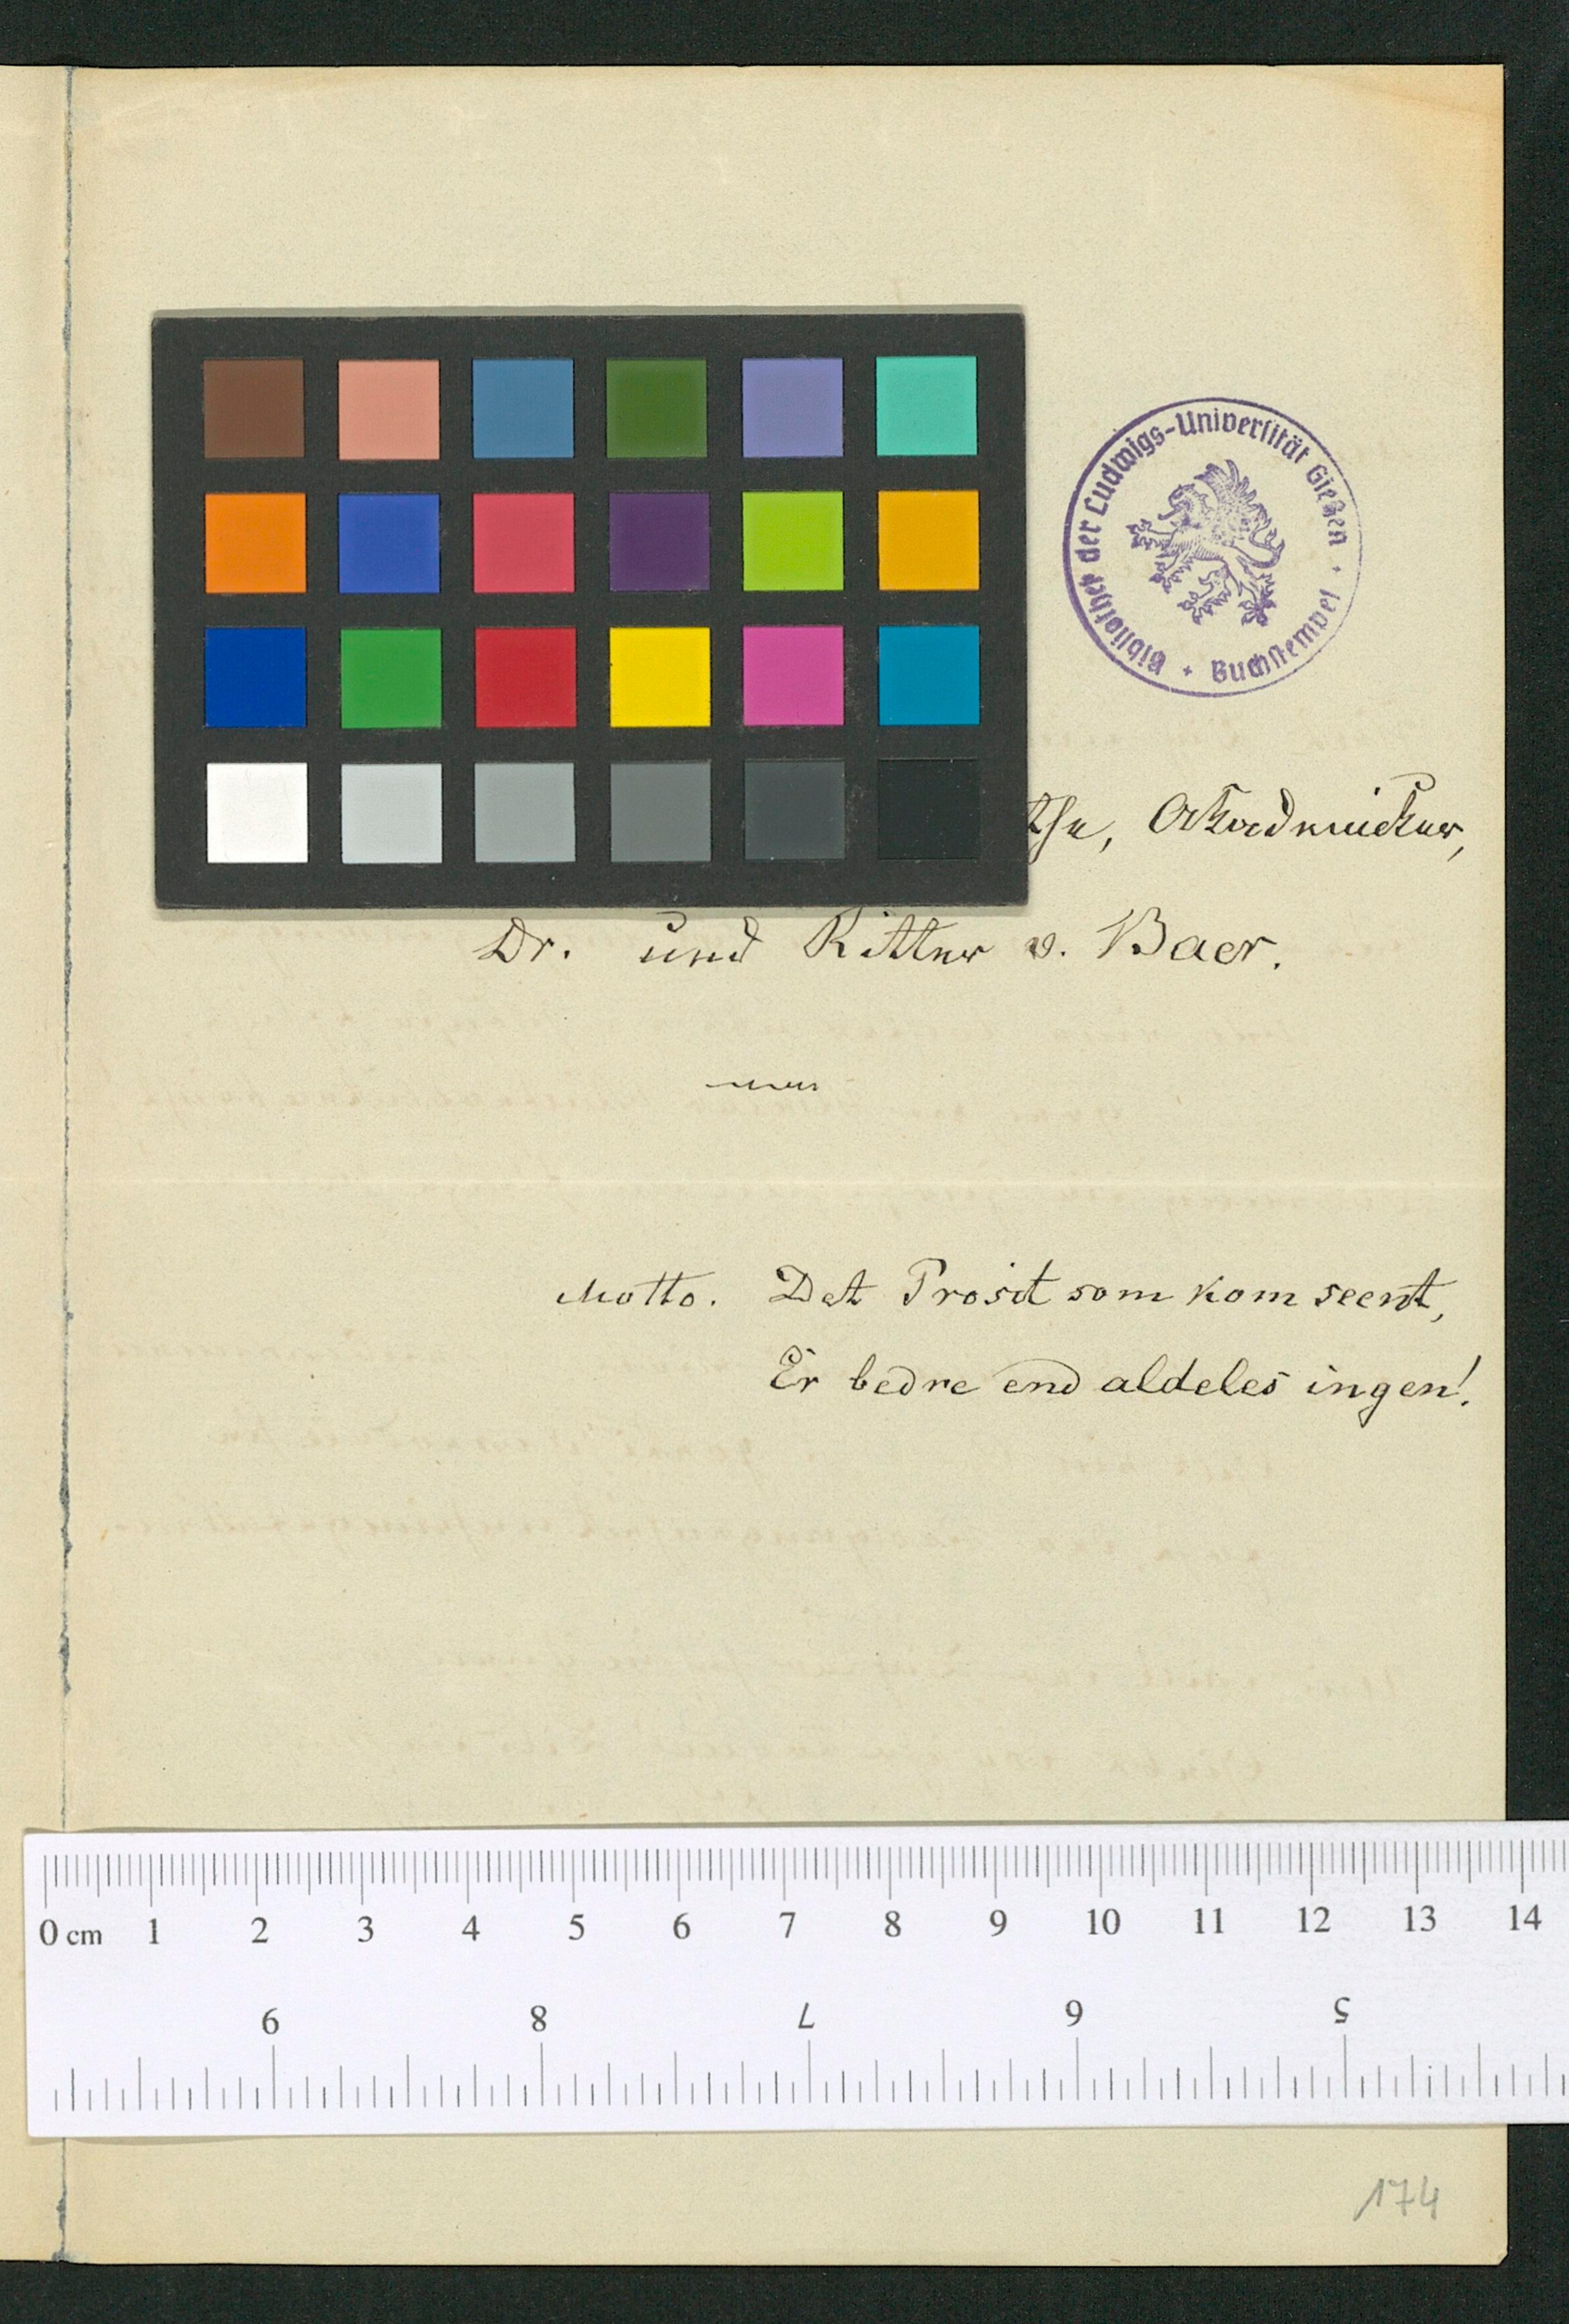 Bibliothek der Ludwigs-Universität Gießen
Buchstempel
Akademiker,
Dr. und Ritter v. Baer.
Motto. Det Prosit som kom seent,
Er bedre end aldeles ingen!
0 cm 1 2 3 4 5 6 7 8 9 10 11 12 13 14
9 8 7 6 5
174